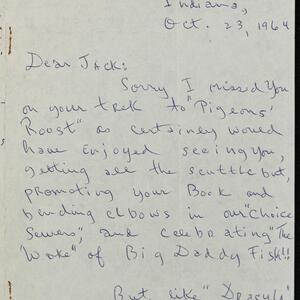 Indiana,
Oct. 23, 1964
Dear Jack:
Sorry I missed you
on your trek to "Pigeons'
Roost" as certainey would
have enjoyed seeing you,
getting all the scuttlebut,
promoting your Book and
bending elbows in our "Choice
Sewers", and celebrating "The
Wake" of Big Daddy Fisk!!
But like "Dracula"